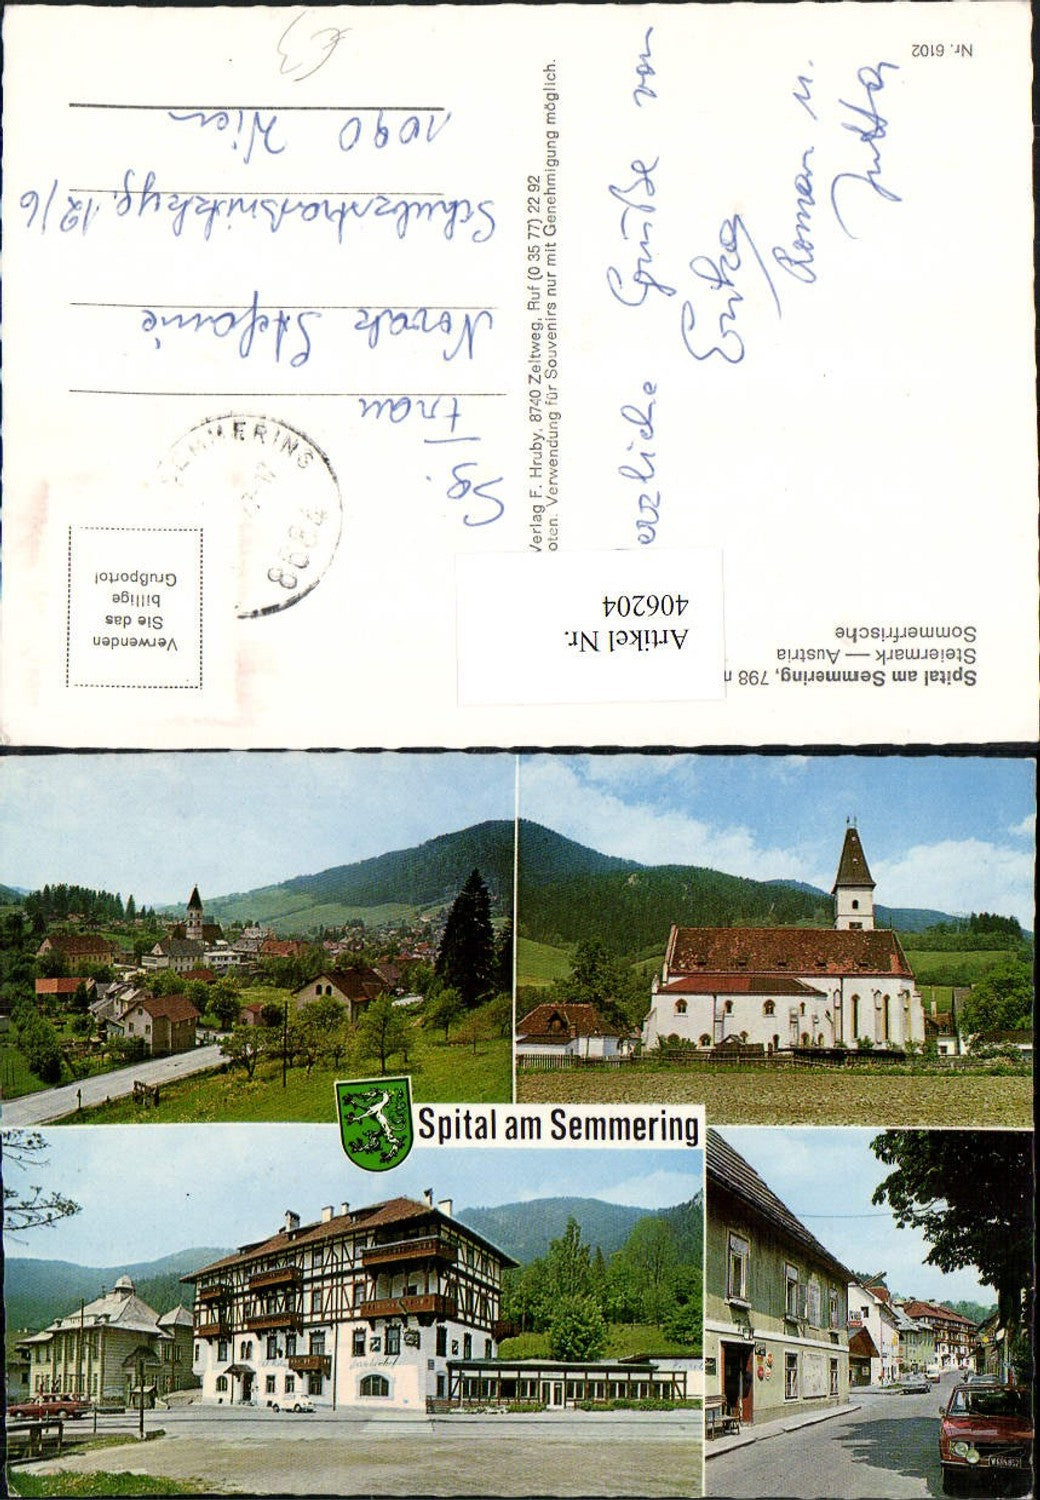 Spital am Semmering, 798
Steiermark — Austria
Sommerfrische
Artikel Nr.
406204
Verwenden
Sie das
billige
Grußporto!
8684
SEMMERING
Herzliche Grüße von
Erika
Roman u.
Jutta
Verlag F. Hruby, 8740 Zeltweg, Ruf (0 35 77) 22 92
Verwendung für Souvenirs nur mit Genehmigung möglich.
Sg.
Frau
Novak Stefanie
12/6
1090 Wien
€3
Nr. 6102
Spital am Semmering